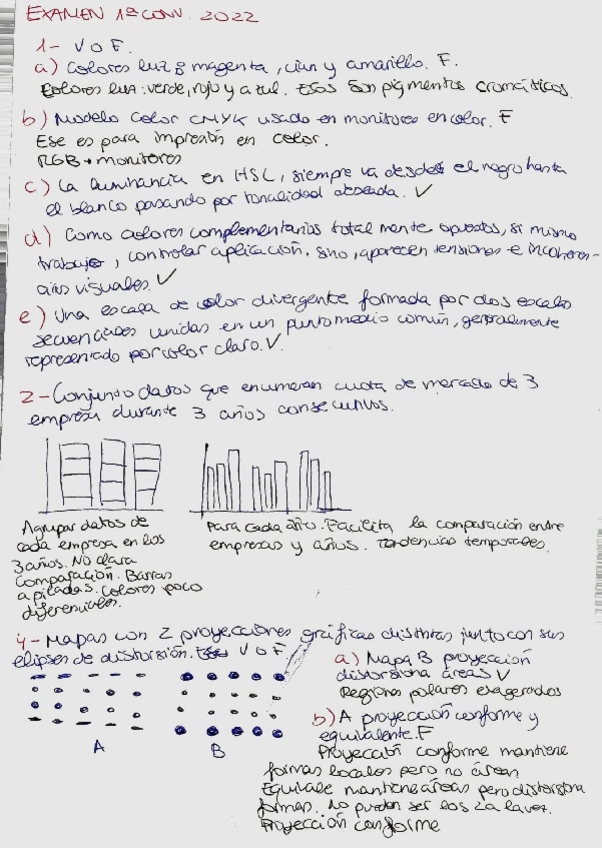 EXAMEN 1ª CONV. 2022
1- V O F.
a) Colores luz: magenta, cian y amarillo. F.
Colores luz: verde, rojo y azul. Esos son pigmentos cromáticos.
b) Modelo color CMYK usado en monitores en color. F
Ese es para impresión en color.
RGB → monitores
c) La luminancia en HSL, siempre va desde el negro hasta
el blanco pasando por tonalidad deseada. V
d) Como colores complementarios totalmente opuestos, si mismo
trabajo, controlar aplicación. Sino, aparecen tensiones e incoheren-
cias visuales. V
e) Una escala de color divergente formada por dos escalas
secuenciales unidas en un punto medio común, generalmente
representado por color claro. V.
2- Conjunto datos que enumeran cuota de mercado de 3
empresa durante 3 años consecutivos.
Agrupar datos de
cada empresa en los
3 años. No clara
comparación. Barras
apiladas. Colores poco
diferenciales.
Para cada año. Facilita la comparación entre
empresas y años. Tendencias temporales.
4- Mapas con 2 proyecciones gráficas distintas junto con sus
elipses de distorsión. V O F
A
B
a) Mapa B proyección
distorsiona áreas V
Regiones polares exageradas
b) A proyección conforme y
equivalente. F
Proyección conforme mantiene
formas locales pero no áreas
Equivale mantiene áreas pero distorsiona
formas. No pueden ser los 2 a la vez.
Proyección conforme